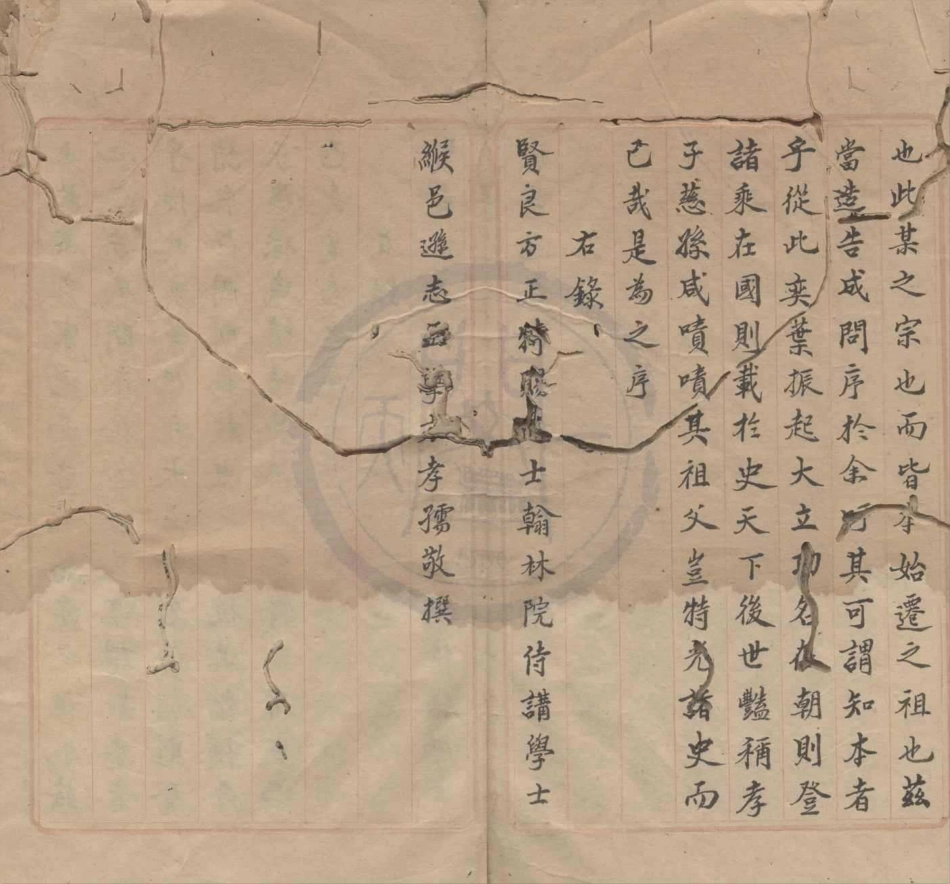 也此某之宗也而皆本始遷之祖也茲
當造告成問序於余其可謂知本者
乎從此奕葉振起大立功名在朝則登
諸乘在國則載於史天下後世豔稱孝
子慈孫咸嘖嘖其祖父豈特光諸史而
已哉是為之序
右錄
賢良方正士翰林院侍講學士
緱邑遜志孝孺敬撰